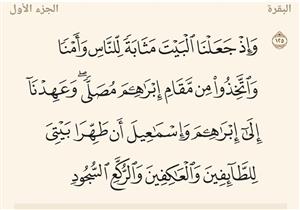 البقرة
الجزء الأول
١٢٥
وَإِذْ جَعَلْنَا ٱلْبَيْتَ مَثَابَةً لِّلنَّاسِ وَأَمْنًا
وَٱتَّخِذُوا۟ مِن مَّقَامِ إِبْرَٰهِـۧمَ مُصَلًّى ۖ وَعَهِدْنَآ
إِلَىٰٓ إِبْرَٰهِـۧمَ وَإِسْمَٰعِيلَ أَن طَهِّرَا بَيْتِىَ
لِلطَّآئِفِينَ وَٱلْعَٰكِفِينَ وَٱلرُّكَّعِ ٱلسُّجُودِ